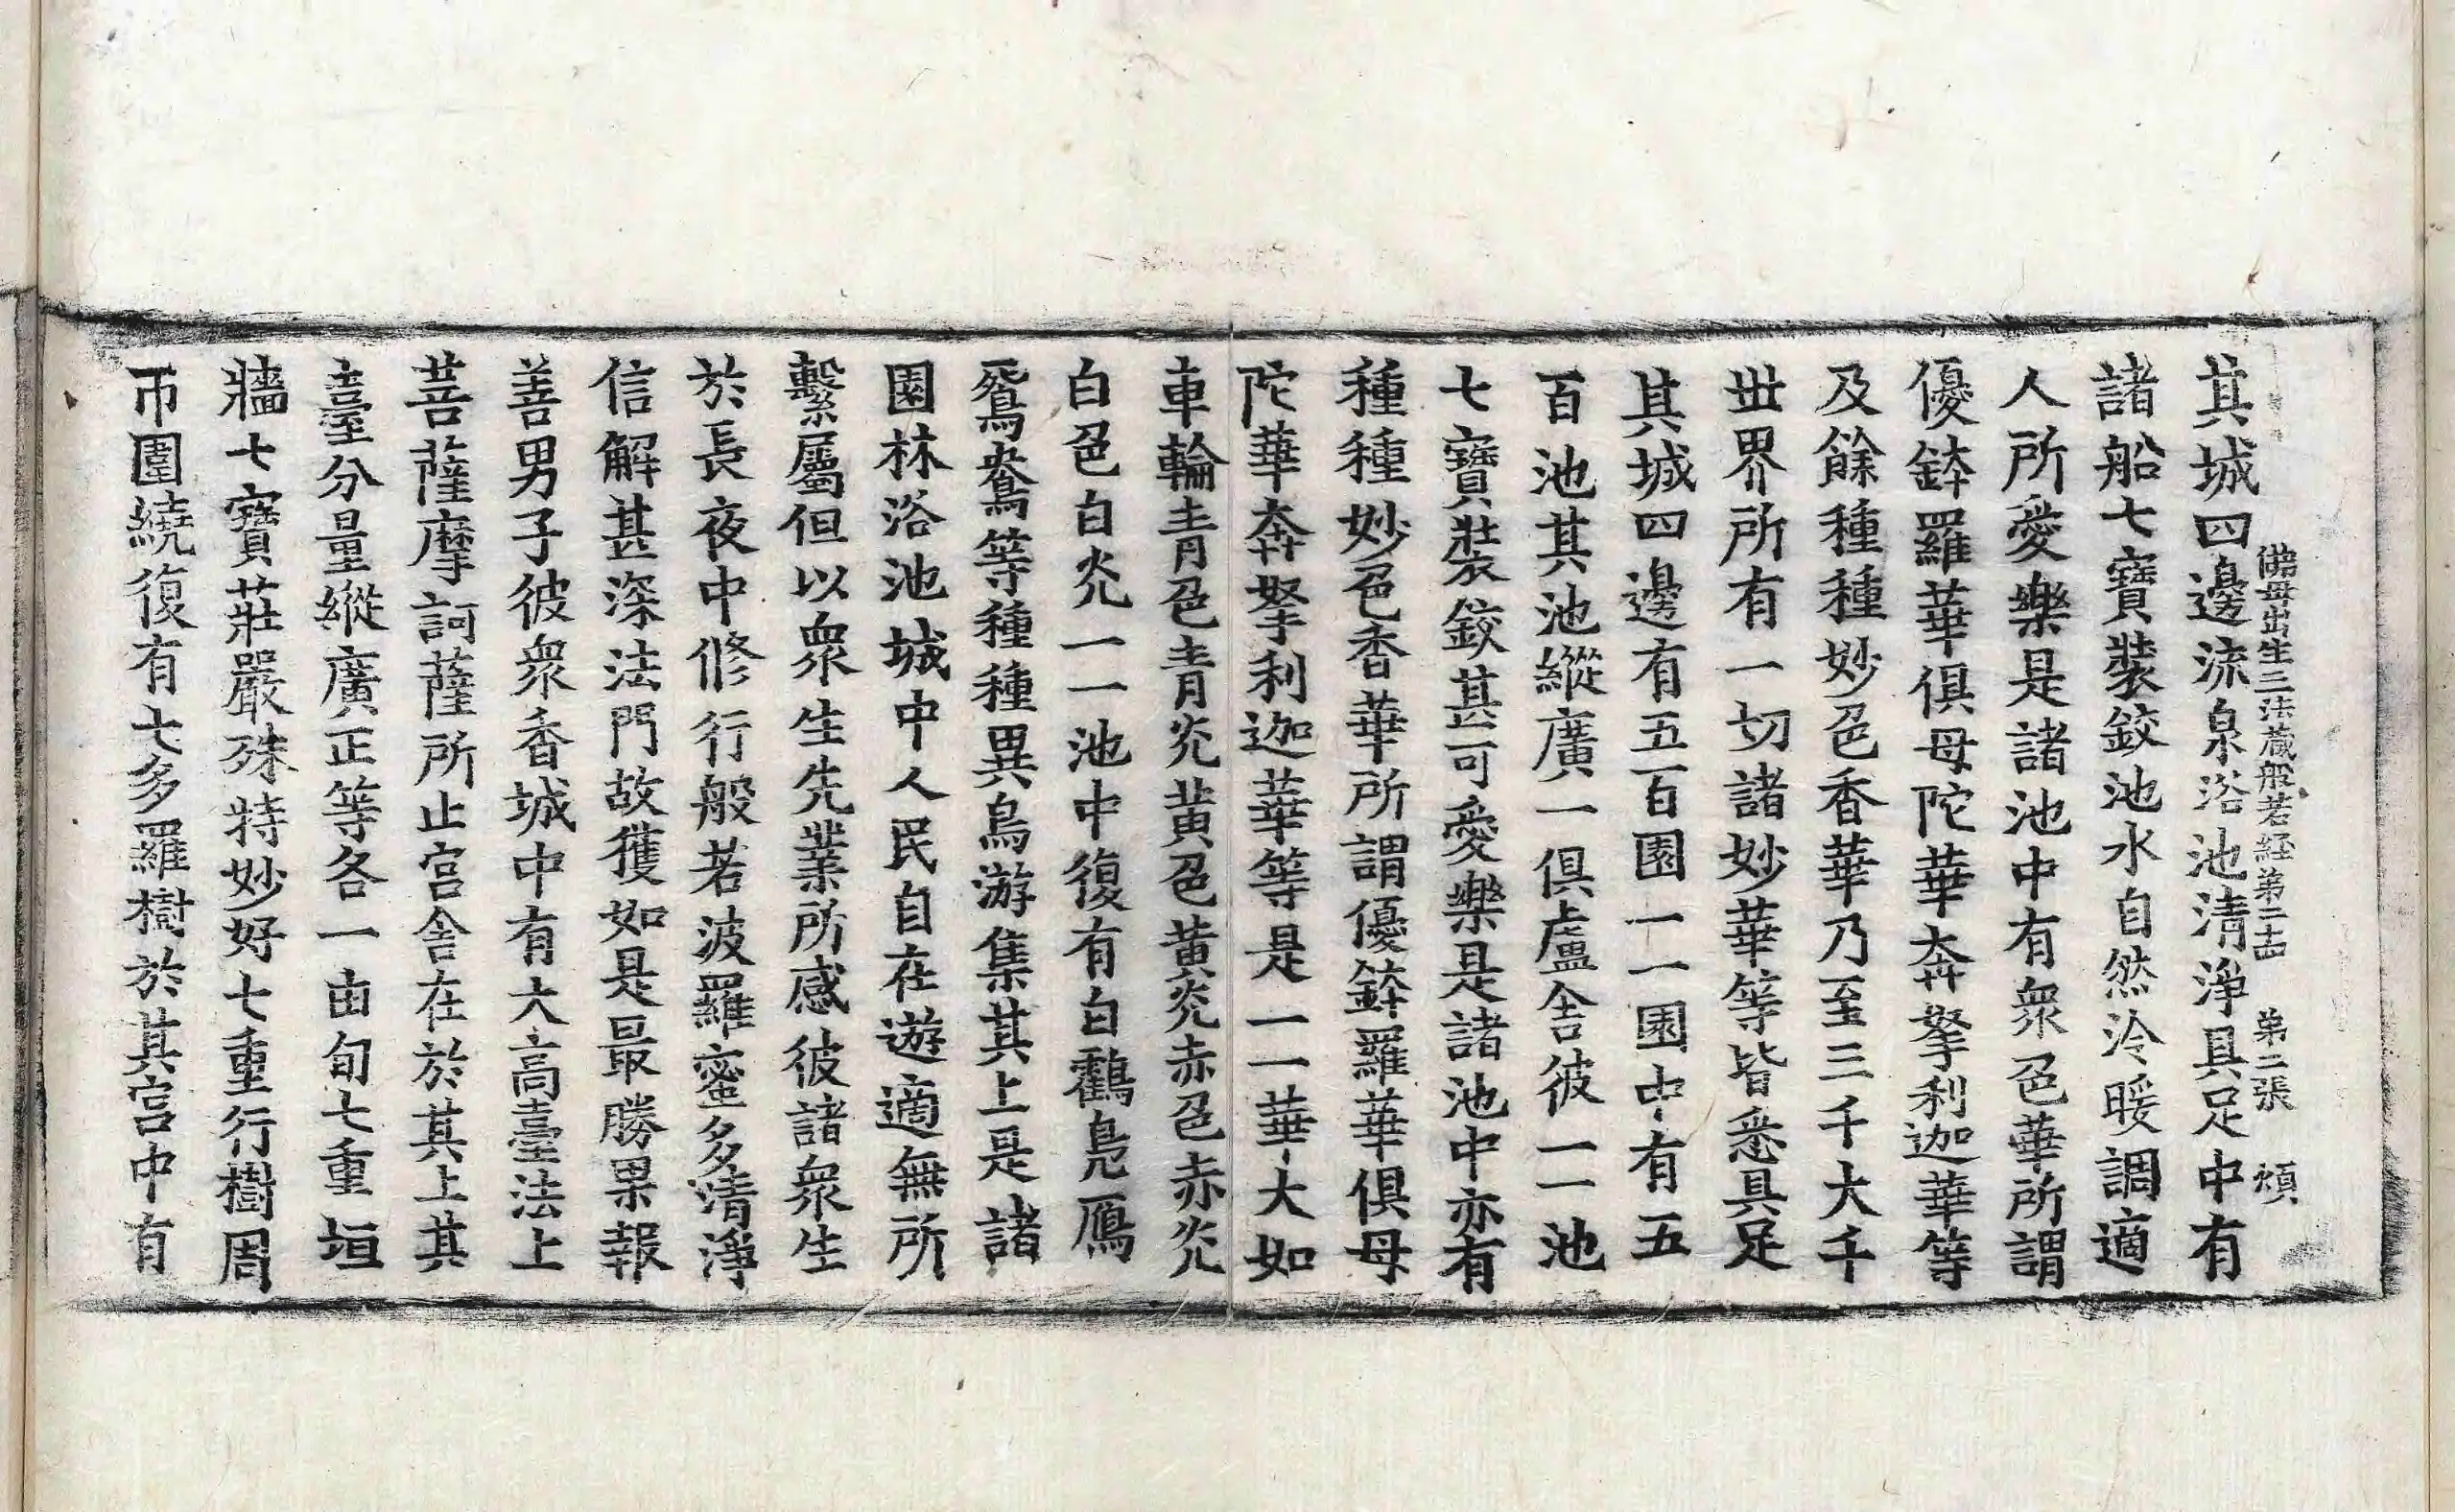 佛母出生三法藏般若経第二十四 第二張 煩
其城四邊流泉浴池清淨具足中有
諸船七寶裝鉸池水自然冷暖調適
人所愛樂是諸池中有衆色華所謂
優鉢羅華俱母陀華奔拏利迦華等
及餘種種妙色香華乃至三千大千
世界所有一切諸妙華等皆悉具足
其城四邊有五百園一一園中有五
百池其池縱廣一俱盧舍彼一一池
七寶裝鉸甚可愛樂是諸池中亦有
種種妙色香華所謂優鉢羅華俱母
陀華奔拏利迦華等是一一華大如
車輪青色青光黃色黃光赤色赤光
白色白光一一池中復有白鸛鳧鴈
鴛鴦等種種異鳥游集其上是諸
園林浴池城中人民自在遊適無所
繫屬但以衆生先業所感彼諸衆生
於長夜中修行般若波羅蜜多清淨
信解甚深法門故獲如是最勝果報
善男子彼衆香城中有大高臺法上
菩薩摩訶薩所止宮舍在於其上其
臺分量縱廣正等各一由旬七重垣
牆七寶莊嚴殊特妙好七重行樹周
帀圍繞復有七多羅樹於其宮中有